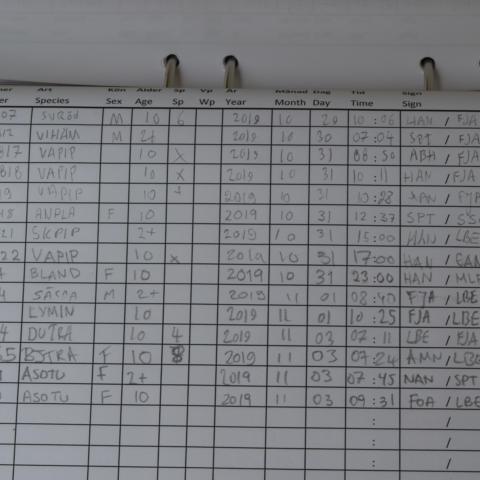 Art Kön Ålder Sp Vp År Månad Dag Tid Sign
Species Sex Age Sp Wp Year Month Day Time Sign
07 M 10 6 2019 10 20 10:06 HAN / FJA
12 VIHAM M 2+ 2019 10 30 07:04 SPT / FJA
817 VAPIP 10 x 2019 10 31 08:50 ABH / FJA
818 VAPIP 10 x 2019 10 31 10:11 HAN / FJA
19 VAPIP 10 2019 10 31 10:28 HAN / FJA
18 ANPLA F 10 2019 10 31 12:37 SPT /
21 SKPIP 2+ 2019 10 31 15:00 HAN / LBE
22 VAPIP 10 x 2019 10 31 17:00 HAN /
BLAND F 10 2019 10 31 23:00 HAN / MLP
4 M 2+ 2019 11 01 08:40 FJA / LBE
LYMIN 10 2019 11 01 10:25 FJA / LBE
4 DUTRA 10 4 2019 11 03 07:11 LBE / FJA
35 BJTRA F 10 8 2019 11 03 07:24 AMN / LBE
ASOTU F 2+ 2019 11 03 07:45 NAN / SPT
ASOTU F 10 2019 11 03 09:31 FOA / LBE
/
/
: /